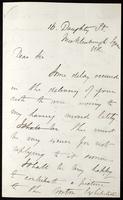 16. Doughty St.
Mecklenburgh Sqre
W.C.
Dear Sir
Some delay occurred
in the delivery of your
note to me owing to
my having moved lately
I shall be
very sorry for not
replying to it sooner.
I shall be happy
to contribute a picture
to the Boston Exhibition